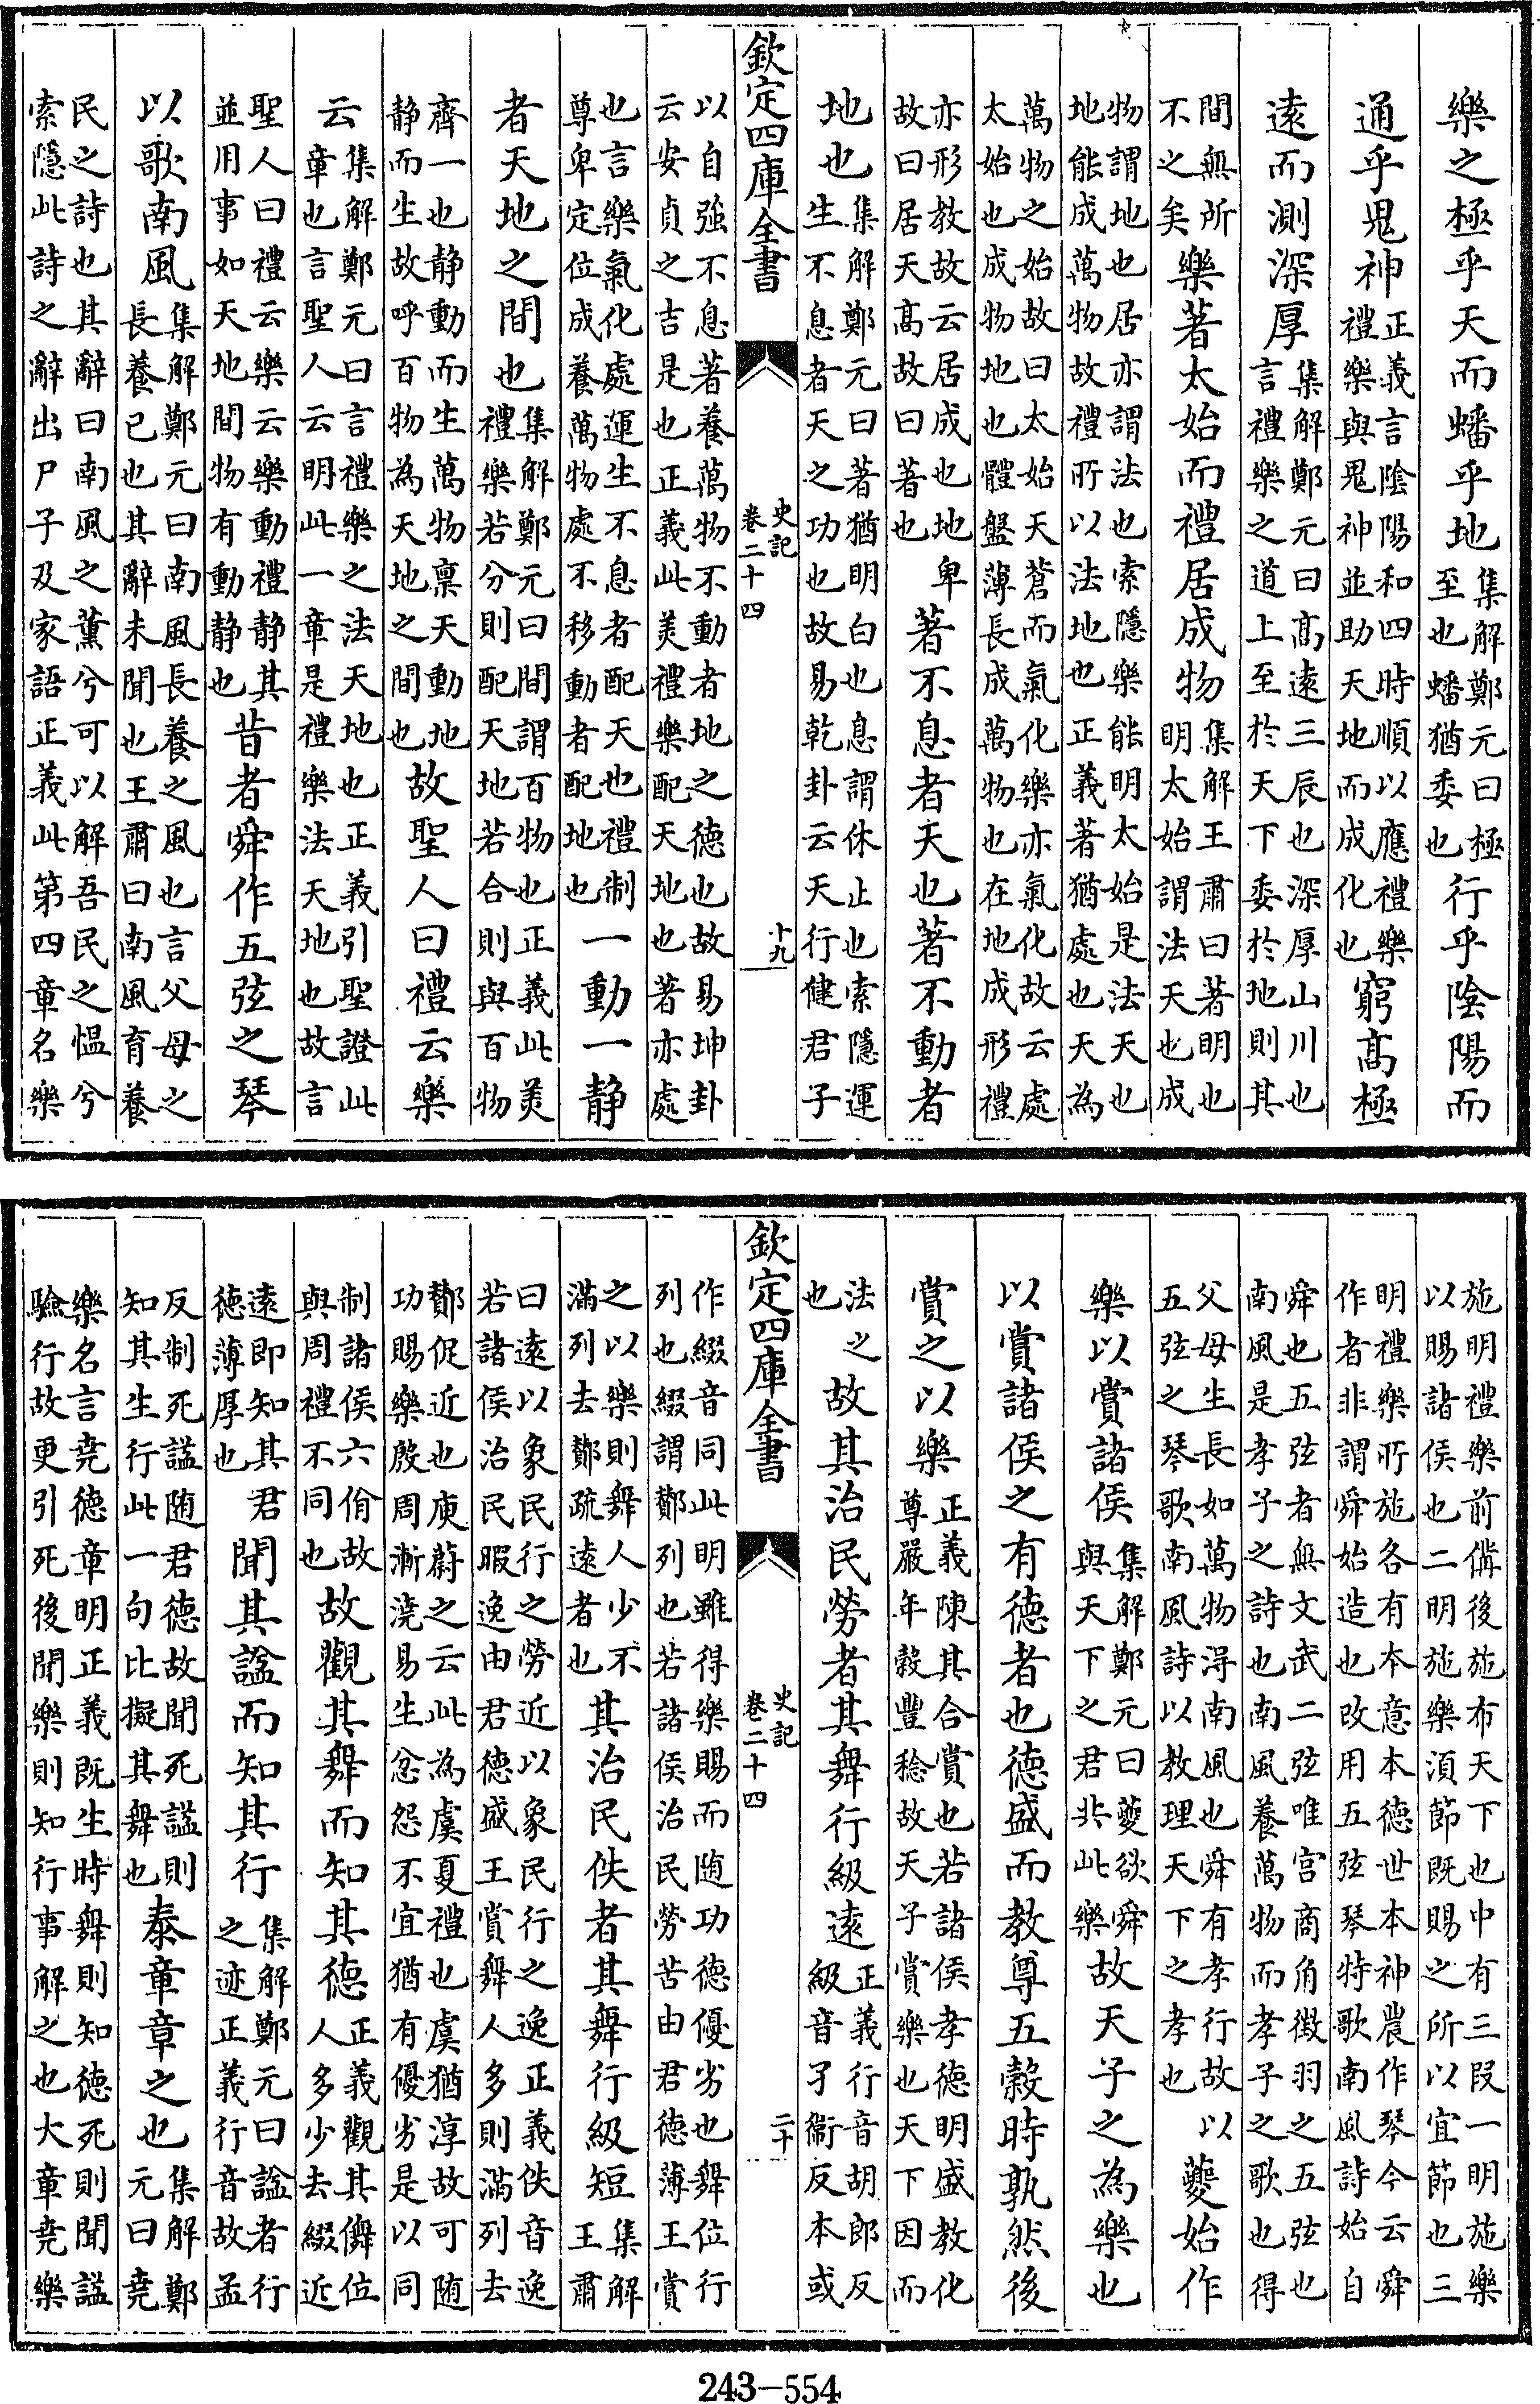 樂之極乎天而蟠乎地集解鄭元曰極至也蟠猶委也行乎陰陽而
通乎鬼神正義言陰陽和四時順以應禮樂禮樂與鬼神並助天地而成化也窮高極
遠而測深厚集解鄭元曰高遠三辰也深厚山川也言禮樂之道上至於天下委於地則其
間無所不之矣樂著太始而禮居成物集解王肅曰著明也明太始謂法天也成
物謂地也居亦謂法也索隱樂能明太始是法天也地能成萬物故禮所以法地也正義著猶處也天為
萬物之始故曰太始天蒼而氣化樂亦氣化故云處太始也成物地也體盤薄長成萬物也在地成形禮
亦形教故云居成也地卑故曰居天高故曰著也著不息者天也著不動者
地也集解鄭元曰著猶明白也息謂休止也索隱運生不息者天之功也故易乾卦云天行健君子
欽定四庫全書
史記
卷二十四
十九
以自強不息著養萬物不動者地之德也故易坤卦云安貞之吉是也正義此美禮樂配天地也著亦處
也言樂氣化處運生不息者配天也禮制尊卑定位成養萬物處不移動者配地也一動一静
者天地之間也集解鄭元曰間謂百物也正義此美禮樂若分則配天地若合則與百物
齊一也静動而生萬物稟天動地静而生故呼百物為天地之間也故聖人曰禮云樂
云集解鄭元曰言禮樂之法天地也正義引聖證此章也言聖人云明此一章是禮樂法天地也故言
聖人曰禮云樂云樂動禮静其並用事如天地間物有動静也昔者舜作五弦之琴
以歌南風集解鄭元曰南風長養之風也言父母之長養已也其辭未聞也王肅曰南風育養
民之詩也其辭曰南風之薰兮可以解吾民之愠兮索隱此詩之辭出尸子及家語正義此第四章名樂
施明禮樂前備後施布天下也中有三段一明施樂以賜諸侯也二明施樂須節既賜之所以宜節也三
明禮樂所施各有本意本德世本神農作琴今云舜作者非謂舜始造也改用五弦琴特歌南風詩始自
舜也五弦者無文武二弦唯宫商角徵羽之五弦也南風是孝子之詩也南風養萬物而孝子之歌也得
父母生長如萬物得南風也舜有孝行故以五弦之琴歌南風詩以教理天下之孝也夔始作
樂以賞諸侯集解鄭元曰夔欲舜與天下之君共此樂故天子之為樂也
以賞諸侯之有德者也德盛而教尊五穀時孰然後
賞之以樂正義陳其合賞也若諸侯孝德明盛教化尊嚴年穀豐稔故天子賞樂也天下因而
法之也故其治民勞者其舞行級遠正義行音胡郎反級音子衞反本或
欽定四庫全書
史記
卷二十四
二十
作綴音同此明雖得樂賜而隨功德優劣也舞位行列也綴謂酇列也若諸侯治民勞苦由君德薄王賞
之以樂則舞人少不滿列去酇疏遠者也其治民佚者其舞行級短集解王肅
曰遠以象民行之勞近以象民行之逸正義佚音逸若諸侯治民暇逸由君德盛王賞舞人多則滿列去
酇促近也庾蔚之云此為虞夏禮也虞猶淳故可隨功賜樂殷周漸澆易生忿怨不宜猶有優劣是以同
制諸侯六佾故與周禮不同也故觀其舞而知其德正義觀其儛位人多少去綴近
遠即知其君德薄厚也聞其諡而知其行集解鄭元曰諡者行之迹正義行音故孟
反制死諡隨君德故聞死諡則知其生行此一句比擬其舞也泰章章之也集解鄭元曰堯
樂名言堯德章明正義既生時舞則知德死則聞諡驗行故更引死後聞樂則知行事解之也大章堯樂
243-554